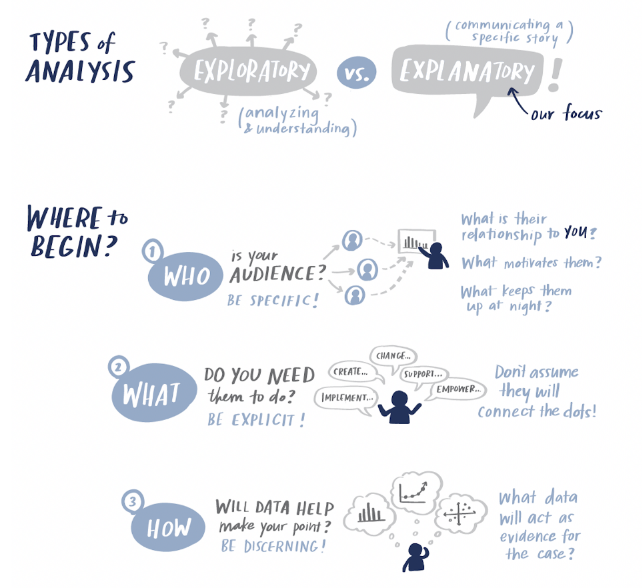 TYPES of
ANALYSIS
? ? ? ? ? ? ? ?
EXPLORATORY
(analyzing
& understanding)
vs.
(communicating a
specific story)
EXPLANATORY!
our focus
WHERE to
BEGIN?
1
WHO
is your
AUDIENCE?
BE SPECIFIC!
What is their
relationship to YOU?
What motivates them?
What keeps them
up at night?
2
WHAT
DO YOU NEED
them to do?
BE EXPLICIT!
CHANGE...
CREATE...
SUPPORT...
IMPLEMENT...
EMPOWER...
Don't assume
they will
connect the dots!
3
HOW
WILL DATA HELP
make your point?
BE DISCERNING!
What data
will act as
evidence for
the case?